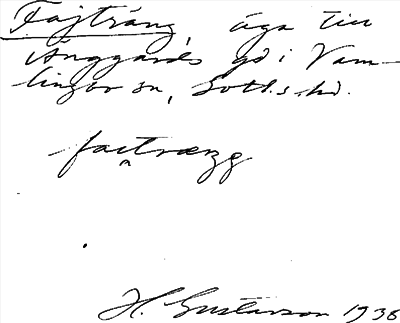 Fajträng, äga till
Anggårds gd i Vam-
lingbo sn, Gotl.s hd.
faitræŋg
H. Gustavson 1938